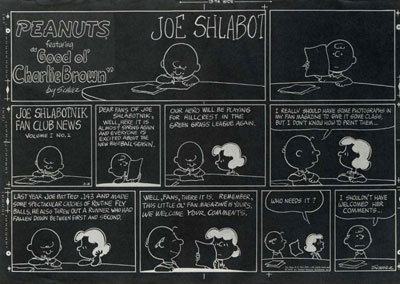 PEANUTS
featuring
"Good ol'
Charlie Brown"
by SCHULZ
JOE SHLABOT
JOE SHLABOTNIK
FAN CLUB NEWS
VOLUME I NO. 1
DEAR FANS OF JOE
SHLABOTNIK,
WELL, HERE IT IS
ALMOST SPRING AGAIN
AND EVERYONE IS
EXCITED ABOUT THE
NEW BASEBALL SEASON.
OUR HERO WILL BE PLAYING
FOR HILLCREST IN THE
GREEN GRASS LEAGUE AGAIN.
I REALLY SHOULD HAVE SOME PHOTOGRAPHS IN
MY FAN MAGAZINE TO GIVE IT SOME CLASS,
BUT I DON'T KNOW HOW TO PRINT THEM...
LAST YEAR JOE BATTED .143 AND MADE
SOME SPECTACULAR CATCHES OF ROUTINE FLY
BALLS. HE ALSO THREW OUT A RUNNER WHO HAD
FALLEN DOWN BETWEEN FIRST AND SECOND.
WELL, FANS, THERE IT IS. REMEMBER,
THIS LITTLE OL' FAN MAGAZINE IS YOURS.
WE WELCOME YOUR COMMENTS.
WHO NEEDS IT?
I SHOULDN'T HAVE
WELCOMED HER
COMMENTS...
SCHULZ